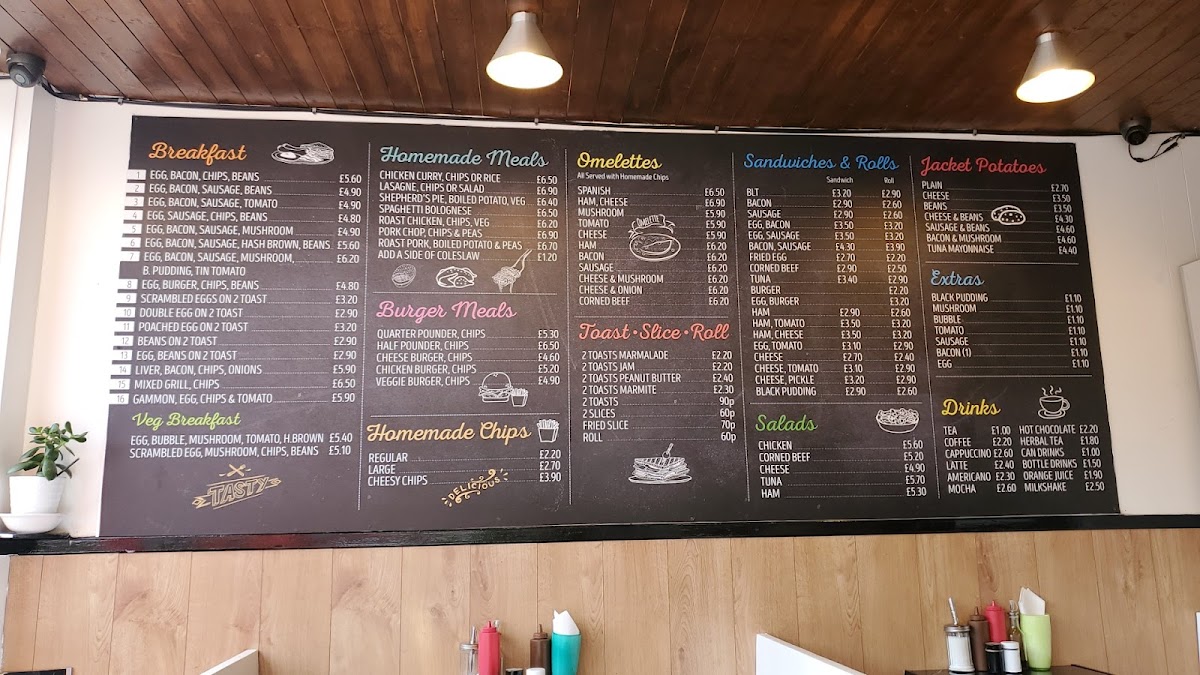 Breakfast
1 EGG, BACON, CHIPS, BEANS £5.60
2 EGG, BACON, SAUSAGE, BEANS £4.90
3 EGG, BACON, SAUSAGE, TOMATO £4.90
4 EGG, SAUSAGE, CHIPS, BEANS £4.80
5 EGG, BACON, SAUSAGE, MUSHROOM £4.90
6 EGG, BACON, SAUSAGE, HASH BROWN, BEANS £5.60
7 EGG, BACON, SAUSAGE, MUSHROOM, £6.20
B. PUDDING, TIN TOMATO
8 EGG, BURGER, CHIPS, BEANS £4.80
9 SCRAMBLED EGGS ON 2 TOAST £3.20
10 DOUBLE EGG ON 2 TOAST £2.90
11 POACHED EGG ON 2 TOAST £3.20
12 BEANS ON 2 TOAST £2.90
13 EGG, BEANS ON 2 TOAST £2.90
14 LIVER, BACON, CHIPS, ONIONS £5.90
15 MIXED GRILL, CHIPS £6.50
16 GAMMON, EGG, CHIPS & TOMATO £5.90
Veg Breakfast
EGG, BUBBLE, MUSHROOM, TOMATO, H.BROWN £5.40
SCRAMBLED EGG, MUSHROOM, CHIPS, BEANS £5.10
TASTY
Homemade Meals
CHICKEN CURRY, CHIPS OR RICE £6.50
LASAGNE, CHIPS OR SALAD £6.90
SHEPHERD'S PIE, BOILED POTATO, VEG £6.40
SPAGHETTI BOLOGNESE £6.50
ROAST CHICKEN, CHIPS, VEG £6.20
PORK CHOP, CHIPS & PEAS £6.90
ROAST PORK, BOILED POTATO & PEAS £6.70
ADD A SIDE OF COLESLAW £1.20
Burger Meals
QUARTER POUNDER, CHIPS £5.30
HALF POUNDER, CHIPS £6.50
CHEESE BURGER, CHIPS £4.60
CHICKEN BURGER, CHIPS £5.20
VEGGIE BURGER, CHIPS £4.90
Homemade Chips
REGULAR £2.20
LARGE £2.70
CHEESY CHIPS £3.90
DELICIOUS
Omelettes
All Served with Homemade Chips
SPANISH £6.50
HAM, CHEESE £6.90
MUSHROOM £5.90
TOMATO £5.90
CHEESE £5.90
HAM £6.20
BACON £6.20
SAUSAGE £6.20
CHEESE & MUSHROOM £6.20
CHEESE & ONION £6.20
CORNED BEEF £6.20
Toast • Slice • Roll
2 TOASTS MARMALADE £2.20
2 TOASTS JAM £2.20
2 TOASTS PEANUT BUTTER £2.40
2 TOASTS MARMITE £2.30
2 TOASTS 90p
2 SLICES 60p
FRIED SLICE 70p
ROLL 60p
Sandwiches & Rolls
Sandwich Roll
BLT £3.20 £2.90
BACON £2.90 £2.60
SAUSAGE £2.90 £2.60
EGG, BACON £3.50 £3.20
EGG, SAUSAGE £3.50 £3.20
BACON, SAUSAGE £4.30 £3.90
FRIED EGG £2.70 £2.20
CORNED BEEF £2.90 £2.50
TUNA £3.40 £2.90
BURGER £2.20
EGG, BURGER £3.20
HAM £2.90 £2.60
HAM, TOMATO £3.50 £3.20
HAM, CHEESE £3.50 £3.20
EGG, TOMATO £3.10 £2.90
CHEESE £2.70 £2.40
CHEESE, TOMATO £3.10 £2.90
CHEESE, PICKLE £3.20 £2.90
BLACK PUDDING £2.90 £2.60
Salads
CHICKEN £5.60
CORNED BEEF £5.20
CHEESE £4.90
TUNA £5.70
HAM £5.30
Jacket Potatoes
PLAIN £2.70
CHEESE £3.50
BEANS £3.50
CHEESE & BEANS £4.30
SAUSAGE & BEANS £4.60
BACON & MUSHROOM £4.60
TUNA MAYONNAISE £4.40
Extras
BLACK PUDDING £1.10
MUSHROOM £1.10
BUBBLE £1.10
TOMATO £1.10
SAUSAGE £1.10
BACON (1) £1.10
EGG £1.10
Drinks
TEA £1.00 HOT CHOCOLATE £2.20
COFFEE £2.20 HERBAL TEA £1.80
CAPPUCCINO £2.60 CAN DRINKS £1.00
LATTE £2.40 BOTTLE DRINKS £1.50
AMERICANO £2.30 ORANGE JUICE £1.90
MOCHA £2.60 MILKSHAKE £2.50